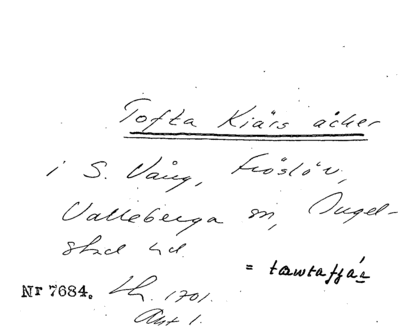 Tofta Kiärs åcker
i S. Vång, Fröslöv,
Valleberga sn, Ingel-
stad hd.
= tawtafjár
Nr 7684. Lh. 1701.
Akt 1.